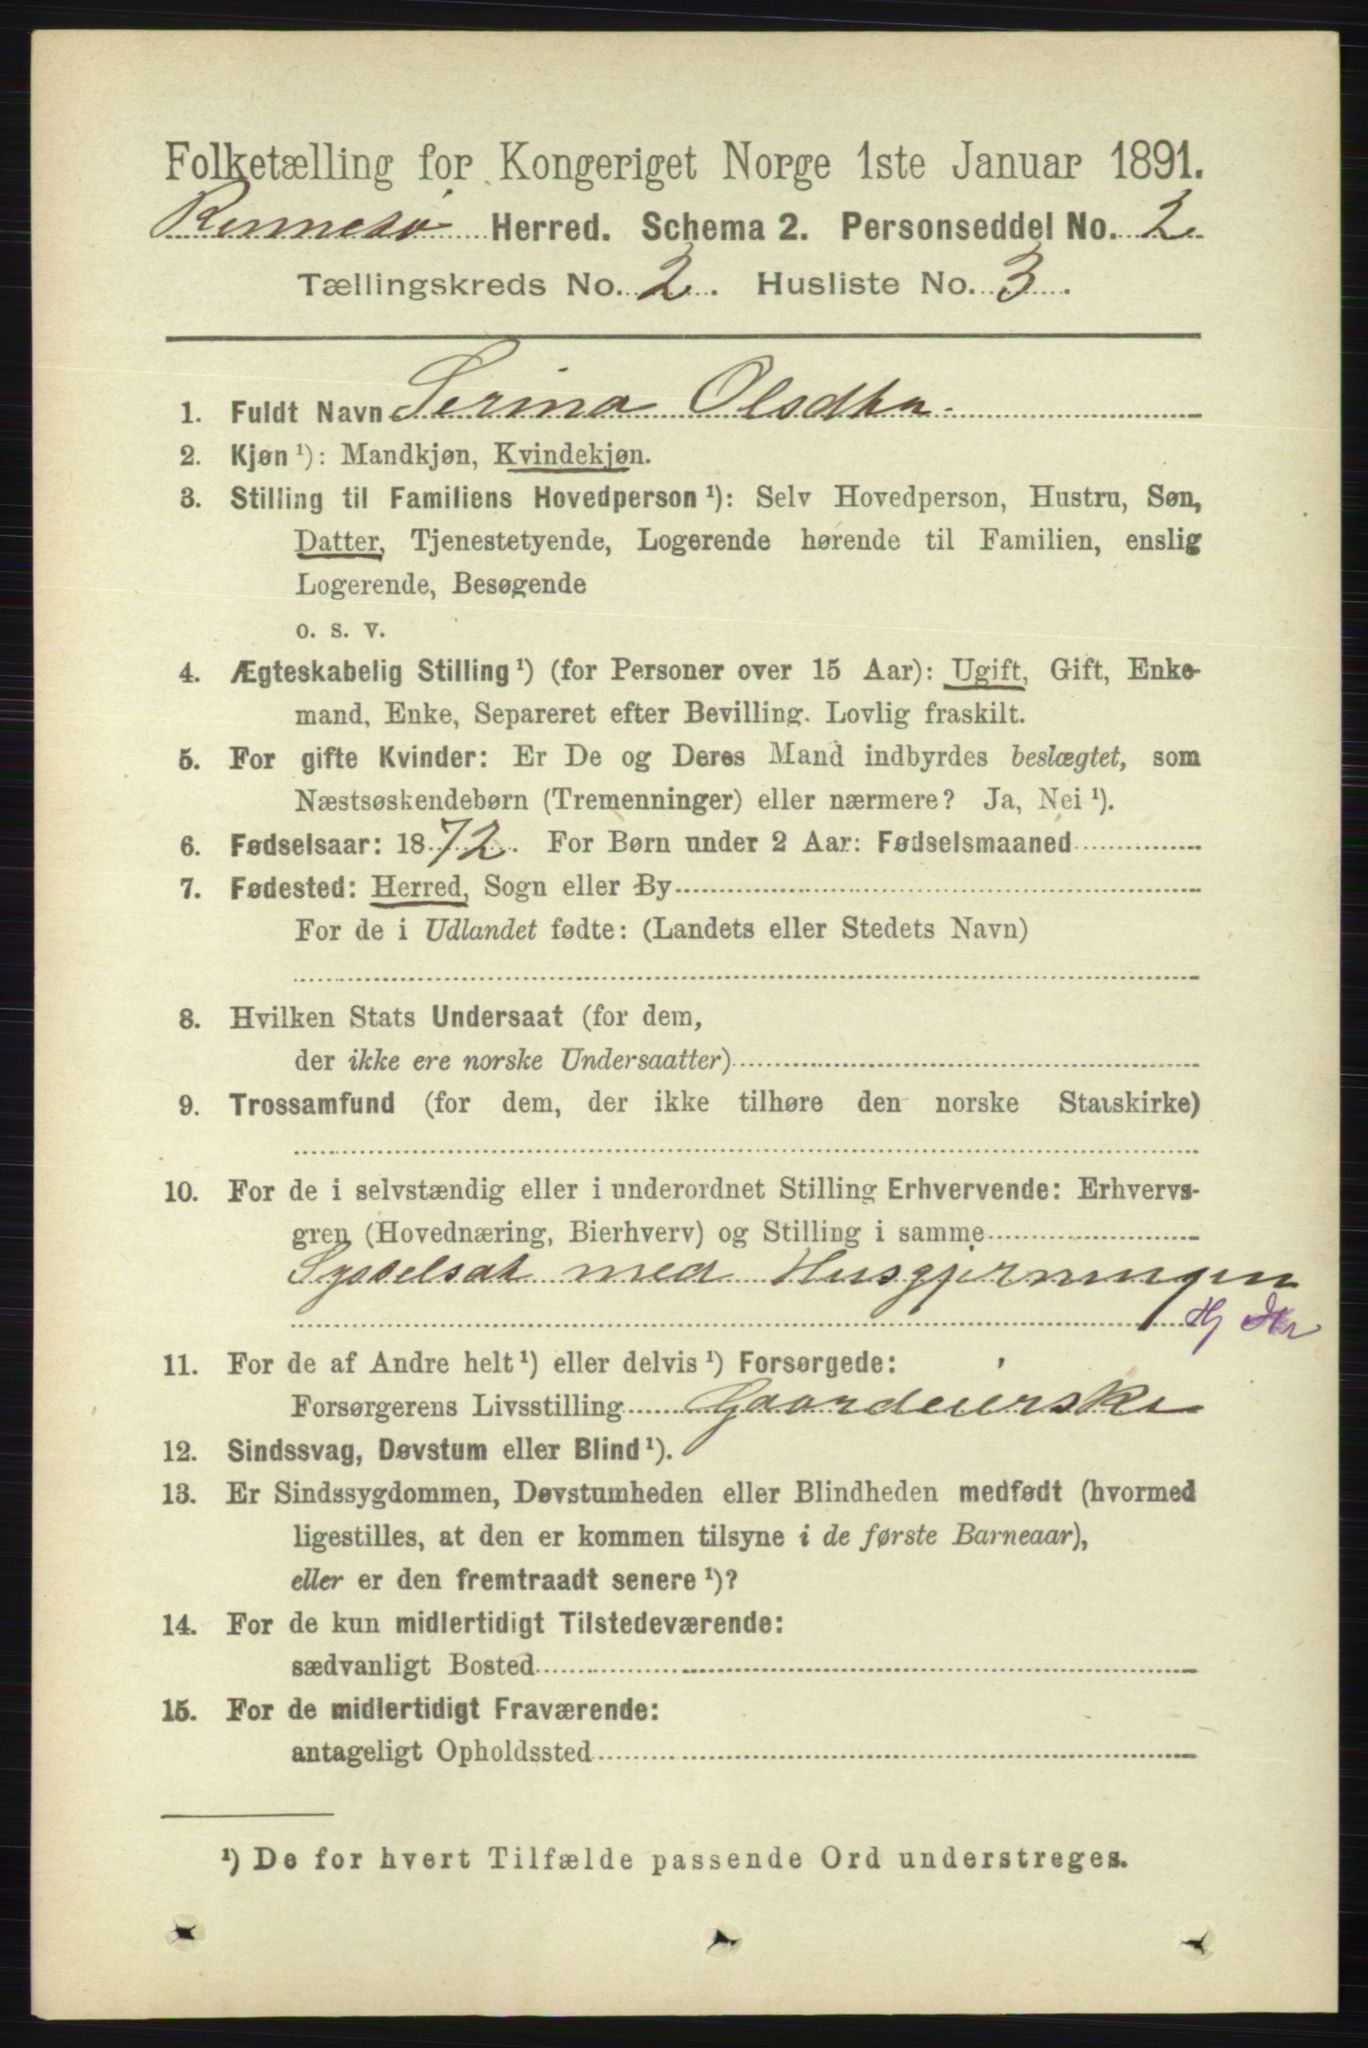 Folketælling for Kongeriget Norge 1ste Januar 1891.
Rennesø Herred. Schema 2. Personseddel No. 2.
Tællingskreds No. 2. Husliste No. 3.
1. Fuldt Navn Serina Olsdtr.
2. Kjøn ¹): Mandkjøn, Kvindekjøn.
3. Stilling til Familiens Hovedperson ¹): Selv Hovedperson, Hustru, Søn,
Datter, Tjenestetyende, Logerende hørende til Familien, enslig
Logerende, Besøgende
o. s. v.
4. Ægteskabelig Stilling ¹) (for Personer over 15 Aar): Ugift, Gift, Enke-
mand, Enke, Separeret efter Bevilling. Lovlig fraskilt.
5. For gifte Kvinder: Er De og Deres Mand indbyrdes beslægtet, som
Næstsøskendebørn (Tremenninger) eller nærmere? Ja, Nei ¹).
6. Fødselsaar: 1872. For Børn under 2 Aar: Fødselsmaaned
7. Fødested: Herred, Sogn eller By
For de i Udlandet fødte: (Landets eller Stedets Navn)
8. Hvilken Stats Undersaat (for dem,
der ikke ere norske Undersaatter)
9. Trossamfund (for dem, der ikke tilhøre den norske Statskirke)
10. For de i selvstændig eller i underordnet Stilling Erhvervende: Erhvervs-
gren (Hovednæring, Bierhverv) og Stilling i samme
Sysselsat med Husgjerningen
11. For de af Andre helt ¹) eller delvis ¹) Forsørgede:
Forsørgerens Livsstilling Gaardeierske
12. Sindssvag, Døvstum eller Blind ¹).
13. Er Sindssygdommen, Døvstumheden eller Blindheden medfødt (hvormed
ligestilles, at den er kommen tilsyne i de første Barneaar),
eller er den fremtraadt senere ¹)?
14. For de kun midlertidigt Tilstedeværende:
sædvanligt Bosted
15. For de midlertidigt Fraværende:
antageligt Opholdssted
¹) De for hvert Tilfælde passende Ord understreges.